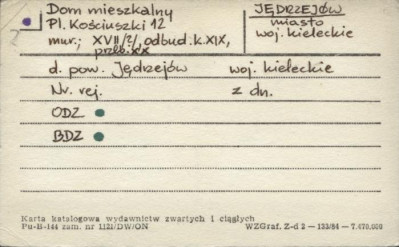 Dom mieszkalny
Pl. Kościuszki 12
mur.; XVII/?/, odbud. k. XIX,
przeb. XX
JĘDRZEJÓW
miasto
woj. kieleckie
d. pow. Jędrzejów woj. kieleckie
Nr. rej. z dn.
ODZ
BDZ
Karta katalogowa wydawnictw zwartych i ciągłych
Pu-B-144 zam. nr 1121/DW/ON WZGraf. Z-d 2 — 133/84 — 7.470.000